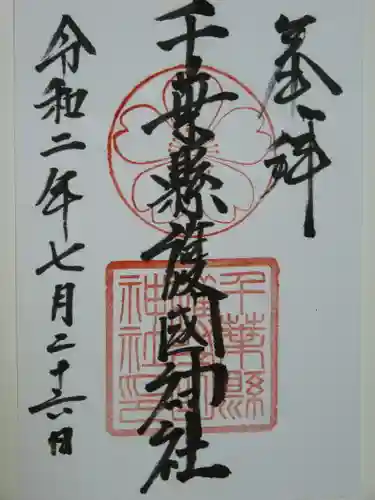 奉拝
千葉縣護國神社
令和二年七月二十六日
千葉縣
護國
神社印